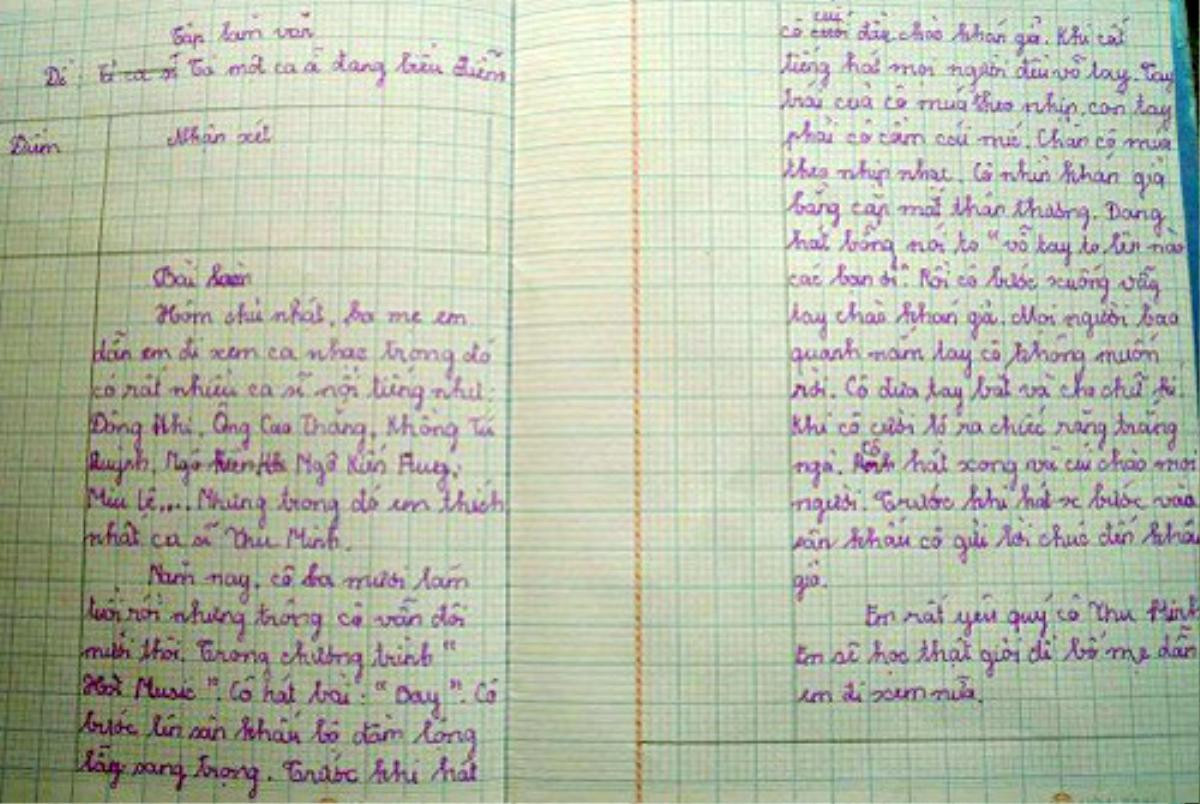 Tập làm văn
Đề: Tả ca sĩ Tả một ca sĩ đang biểu diễn
Điểm
Nhận xét
Bài làm
Hôm chủ nhất, ba mẹ em
dẫn em đi xem ca nhạc trong đó
có rất nhiều ca sĩ nổi tiếng như:
Đông Nhi, Ông Cao Thắng, Khổng Tú
Quỳnh, Ngô Kiến Huy,
Miu Lê.... Nhưng trong đó em thích
nhất ca sĩ Thu Minh.
Năm nay, cô ba mươi lăm
tuổi rồi nhưng trông cô vẫn đôi
mươi thôi. Trong chương trình "
Hot Music". Cô hát bài: "Bay". Cô
bước lên sân khấu bộ đầm lộng
lẫy sang trọng. Trước khi hát
cô cúi đầu chào khán giả. Khi cất
tiếng hát mọi người đều vỗ tay. Tay
trái của cô múa theo nhịp, còn tay
phải cô cầm cái mic. Chân cô múa
theo nhịp nhạc. Cô nhìn khán giả
bằng cặp mắt thân thương. Đang
hát bỗng nói to "vỗ tay to lên nào
các bạn ơi". Rồi cô bước xuống vẫy
tay chào khán giả. Mọi người bao
quanh nắm tay cô không muốn
rời. Cô đưa tay bắt và cho chữ kí.
Khi cô cười ló ra chiếc răng trắng
ngà. Cô hát xong và cúi chào mọi
người. Trước khi hát bước vào
sân khấu cô gửi lời chúc đến khán
giả.
Em rất yêu quý cô Thu Minh
Em sẽ học thật giỏi để bố mẹ dẫn
em đi xem nữa.